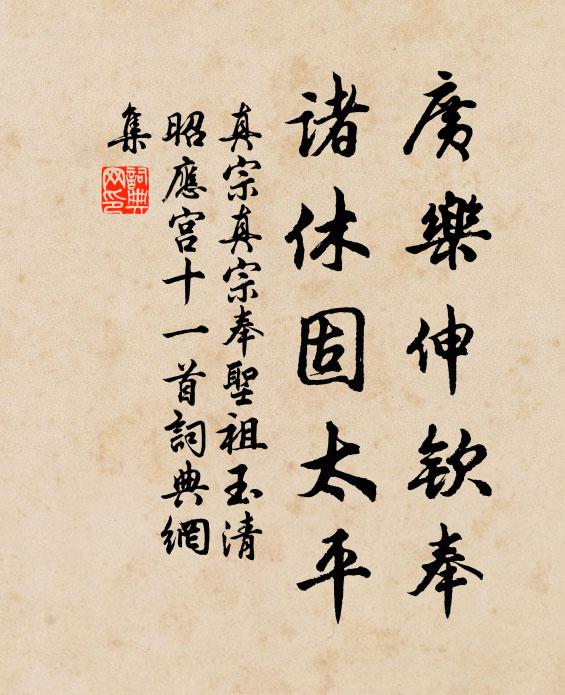 廣樂伸欽奉
諸休固太平
真宗真宗奉聖祖玉清
昭應宮十一首詞典網
集
詞典
网印